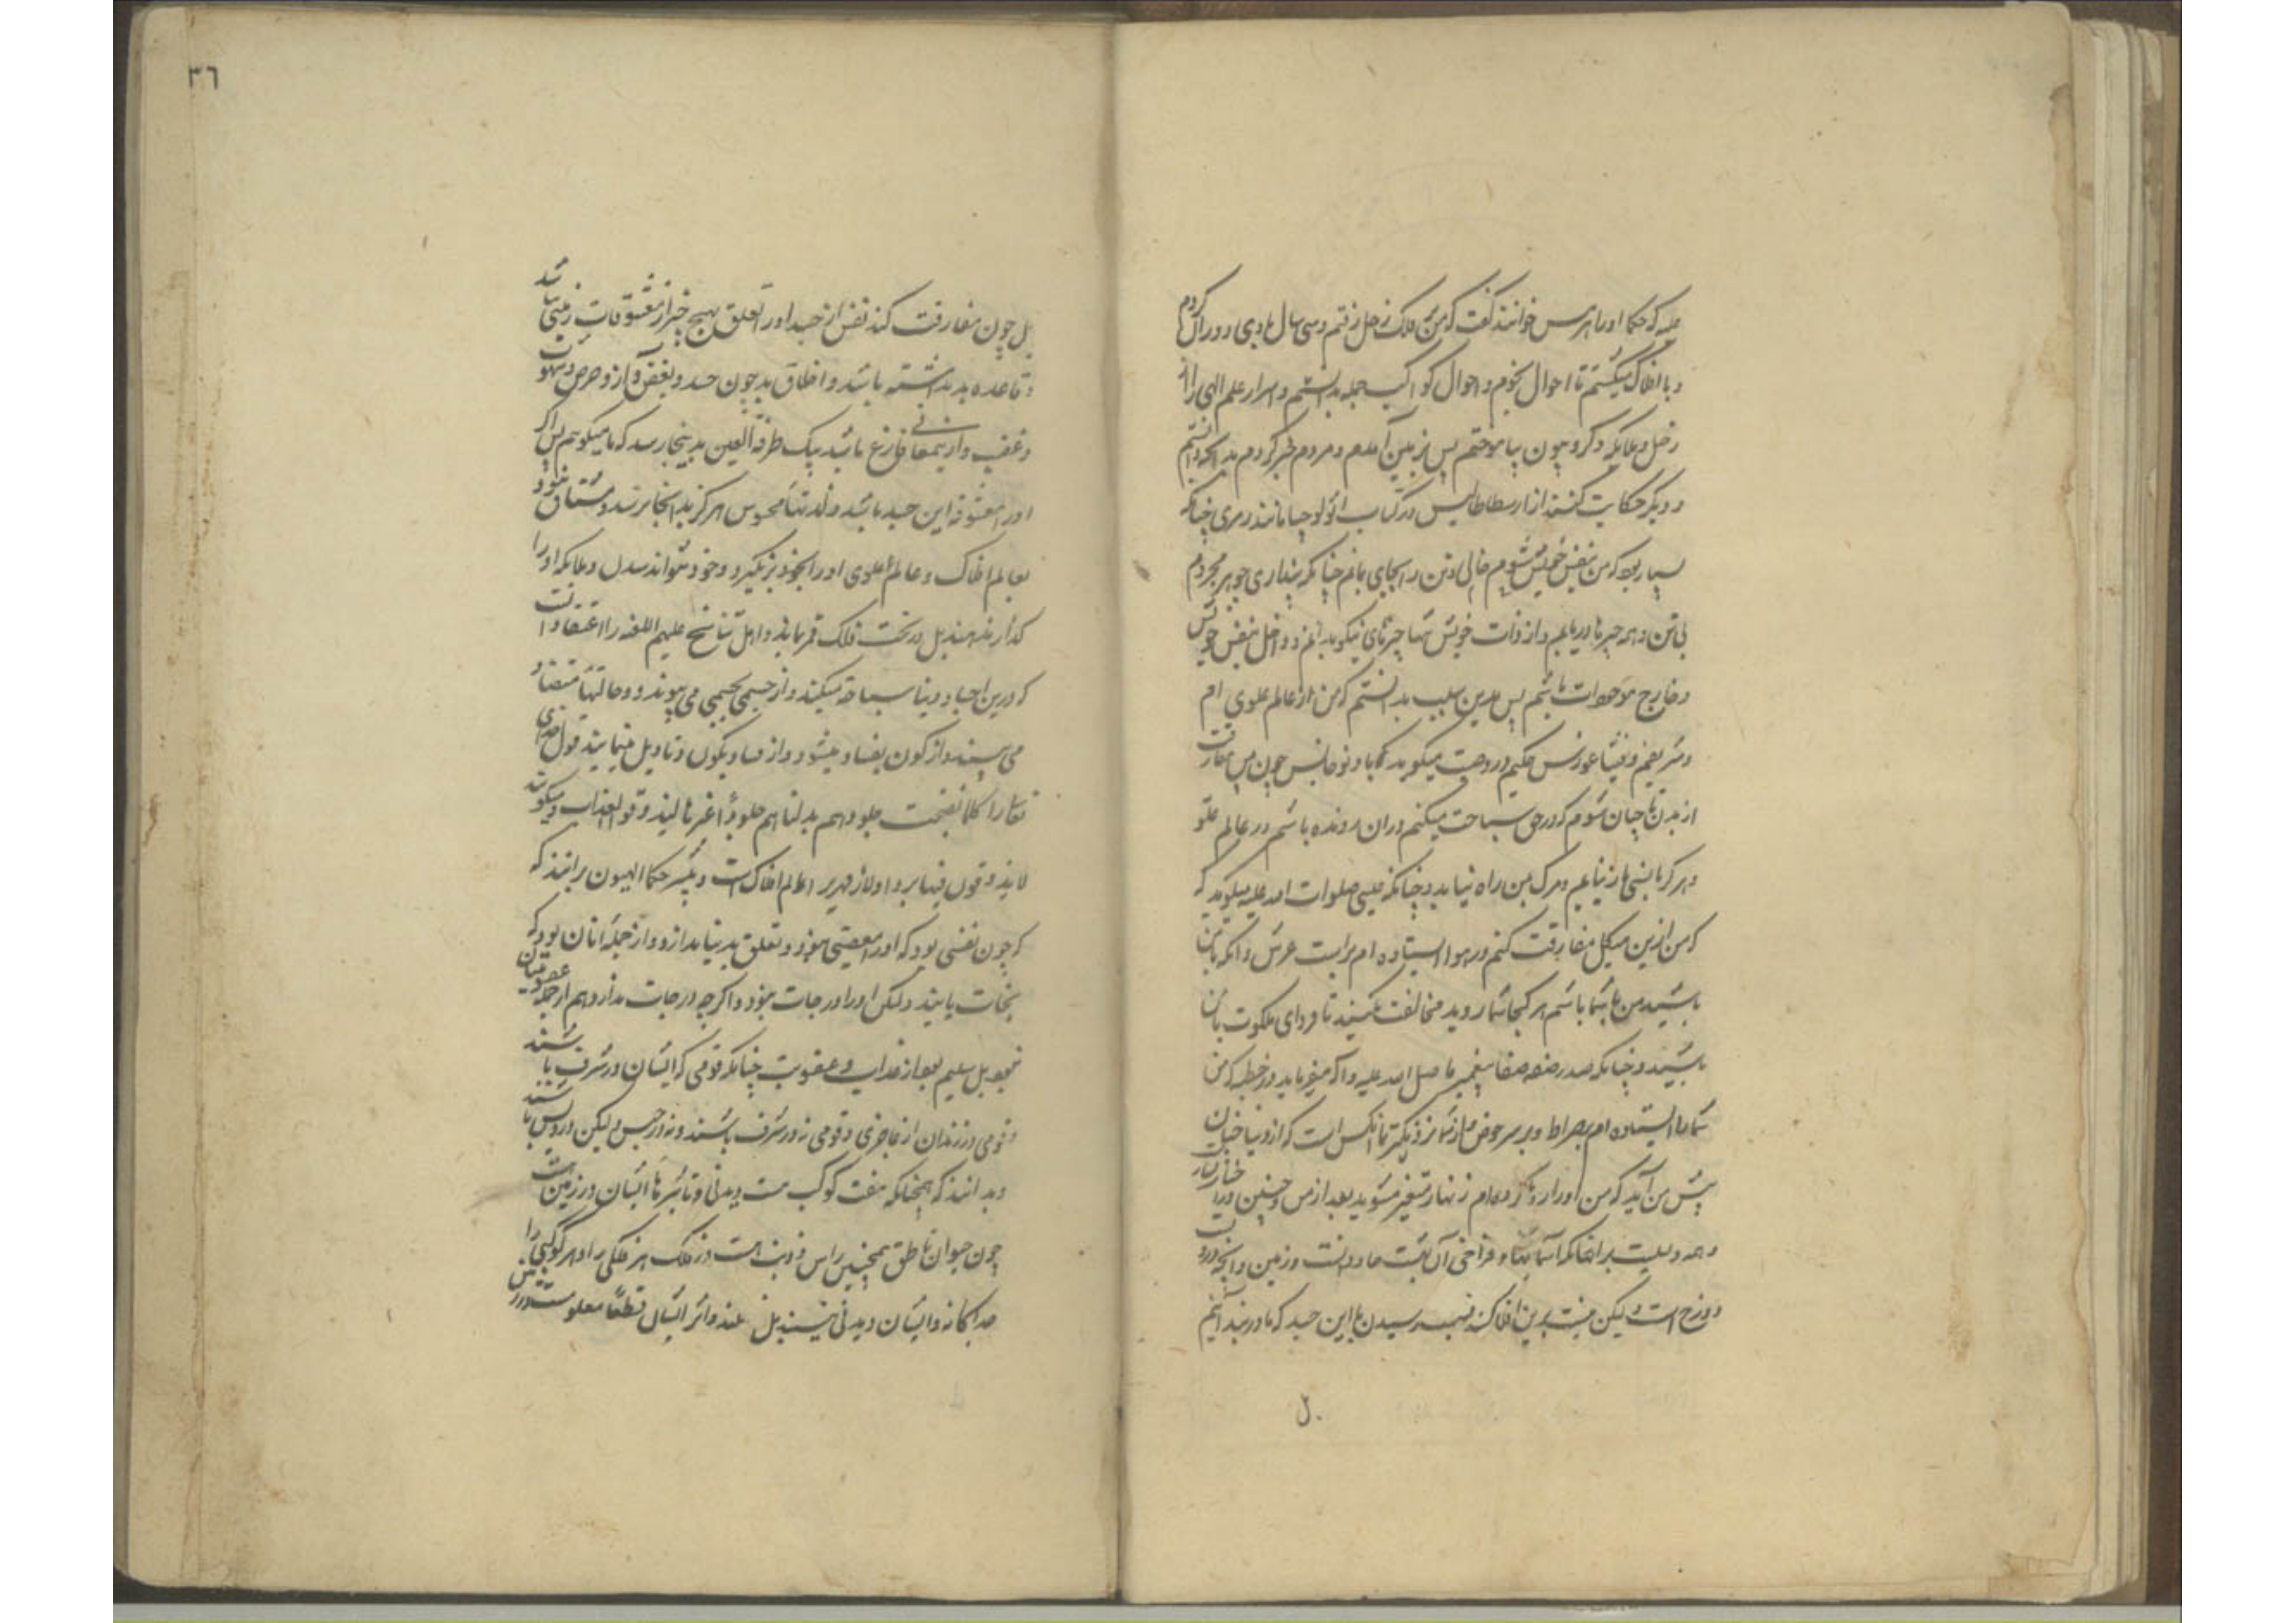 علیه که حکما او را هرمس خوانند گفت که من بر فلک زحل رفتم و سی سال با وی دوران کردم
و با افلاک میگشتم تا احوال نجوم و احوال کواکب جمله بدانستم و اسرار علم الهی را از
زحل و ملایکه و کروبیون بیاموختم پس بزمین آمدم و مردم خبر کردم بدانچه دانستم
و دیگر حکایت کنند از ارسطاطالیس در کتاب اثولوجیا مانند رمزی چنانکه
بسیار بود که من بنفس خویش شوم خالی و تن را بجای مانم چنانکه پنداری جوهر مجردم
بی تن و همه چیزها دریابم و از ذات خویش تنها چیزهای نیکو بدانم و داخل بنفس خویش
و خارج موجودات باشم پس بدین سبب بدانستم که من از عالم علوی ام
و فیثاغورس حکیم در وصیت میگوید که یا دیوجانس چون من مفارقت
از بدنها چنان شوم که در جو سیاحت میکنم و ران رونده باشم در عالم علو
و هرگز بانسی باز نیایم و مرک بمن راه نیابد و چنانکه عیسی صلوات الله علیه میگوید که
که من ازین هیکل مفارقت کنم در هوا ایستاده ام براست عرش و آنکه با من
باشید من با شما باشم هر کجا شما روید مخالفت مکنید تا فردای ملکوت با من
باشید و چنانکه صدر صفه صفا پیغمبر ما صلی الله علیه و آله میفرماید در خطبه که من
شما را ایستاده ام بر صراط و بر سر حوض و از شما نزدیکتر با من آنکس است که از دنیا چنان
پیش من آید که من او را رها کرده ام زنهار متغیر مشوید بعد از من و چنین
و همه دلیلست بر آنکه آسمانها و فراخی آن بهشت جاودانست و زمین و آنچه دروست
دوزخ است ولیکن نیست برین افلاک رسیدن با این جسد که ما در بند آنیم
بل
٣٦
بل چون مفارقت کند نفس از جسد او را تعلق بهیچ چیز از معشوقات زمینی نباشد
و قاعده بد نداشته باشد و اخلاق بد چون حسد و بغض و آز و حرص و شهوت
و غضب و ازین معانی فارغ باشد بیک طرفة العین بدینجا رسد که ما میگوییم پس اگر
او را معشوقه این جسد باشد و لذتهاء محسوس هرگز بدانجا نرسد و مشتاق نبود
بعالم افلاک و عالم علوی او را بخود بر نگیرد و خود نتواند شدن و ملایکه او را
نگذارند بل در تحت فلک قمر بماند و اهل تناسخ علیهم اللعنه را اعتقاد آنست
که درین اجساد دنیا سیاحة میکنند و از جسمی بجسمی می پیوندد و حالتهاء متضاد
می بینند و از کون بفساد میشود و از فساد بکون و تأویل مینمایند قول خدای
تعالی را کلما نضجت جلودهم بدلناهم جلوداً غیرها لیذوقوا العذاب و میگویند
لا یذوقون فیها بردا و لا زمهریر عالم افلاک است و بیشتر حکما الهیون برانند که
که چون نفسی بود که او را معصیتی نبود و تعلق بدنیا ندارد و از جمله آنان بود که
نجات یابند ولیکن او را درجات نبود و اگر چه درجات ندارد هم از جمله عصیان
نبود بل سلیم بود از عذاب و عقوبت چنانکه قومی که ایشان در شرف باشند
و قومی در زندان از فاجری و قومی نه در شرف باشند و نه در حبس ولیکن درویش باشند
و بدانند که همچنانکه هفت کوکب هست دیدنی و تاثیرها ایشان در زمین هست
چون حیوان ناطق همچنین راس و ذنب هست در فلک هر فلکی را و هر کوکبی را
جداگانه و ایشان دیدنی نیستند بل و اثر ایشان قطعاً معلومست در زمین